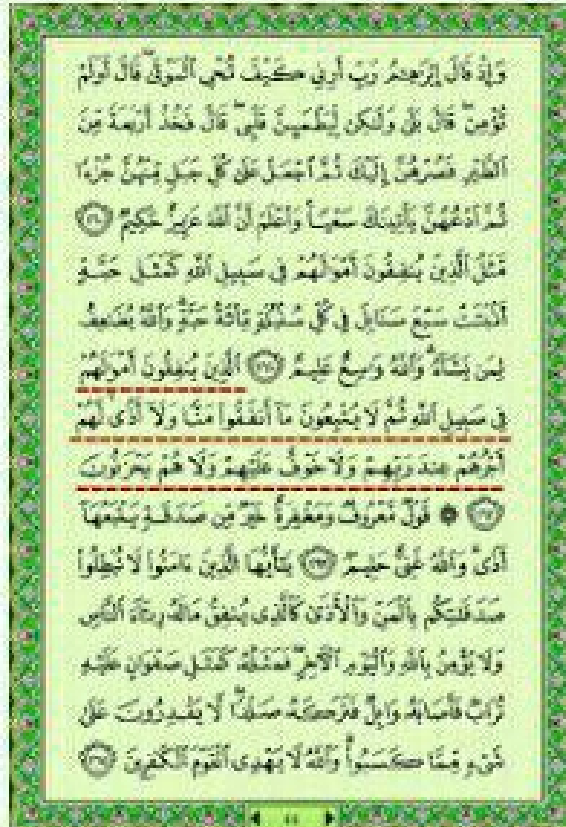 وَإِذْ قَالَ إِبْرَاهِيمُ رَبِّ أَرِنِي كَيْفَ تُحْيِ الْمَوْتَىٰ قَالَ أَوَلَمْ
تُؤْمِن قَالَ بَلَىٰ وَلَٰكِن لِّيَطْمَئِنَّ قَلْبِي قَالَ فَخُذْ أَرْبَعَةً مِّنَ
الطَّيْرِ فَصُرْهُنَّ إِلَيْكَ ثُمَّ اجْعَلْ عَلَىٰ كُلِّ جَبَلٍ مِّنْهُنَّ جُزْءًا
ثُمَّ ادْعُهُنَّ يَأْتِينَكَ سَعْيًا وَاعْلَمْ أَنَّ اللَّهَ عَزِيزٌ حَكِيمٌ ٢٦٠
مَّثَلُ الَّذِينَ يُنفِقُونَ أَمْوَالَهُمْ فِي سَبِيلِ اللَّهِ كَمَثَلِ حَبَّةٍ
أَنبَتَتْ سَبْعَ سَنَابِلَ فِي كُلِّ سُنبُلَةٍ مِّائَةُ حَبَّةٍ وَاللَّهُ يُضَاعِفُ
لِمَن يَشَاءُ وَاللَّهُ وَاسِعٌ عَلِيمٌ ٢٦١ الَّذِينَ يُنفِقُونَ أَمْوَالَهُمْ
فِي سَبِيلِ اللَّهِ ثُمَّ لَا يُتْبِعُونَ مَا أَنفَقُوا مَنًّا وَلَا أَذًى لَّهُمْ
أَجْرُهُمْ عِندَ رَبِّهِمْ وَلَا خَوْفٌ عَلَيْهِمْ وَلَا هُمْ يَحْزَنُونَ
٢٦٢ ۞ قَوْلٌ مَّعْرُوفٌ وَمَغْفِرَةٌ خَيْرٌ مِّن صَدَقَةٍ يَتْبَعُهَا
أَذًى وَاللَّهُ غَنِيٌّ حَلِيمٌ ٢٦٣ يَا أَيُّهَا الَّذِينَ آمَنُوا لَا تُبْطِلُوا
صَدَقَاتِكُم بِالْمَنِّ وَالْأَذَىٰ كَالَّذِي يُنفِقُ مَالَهُ رِئَاءَ النَّاسِ
وَلَا يُؤْمِنُ بِاللَّهِ وَالْيَوْمِ الْآخِرِ فَمَثَلُهُ كَمَثَلِ صَفْوَانٍ عَلَيْهِ
تُرَابٌ فَأَصَابَهُ وَابِلٌ فَتَرَكَهُ صَلْدًا لَّا يَقْدِرُونَ عَلَىٰ
شَيْءٍ مِّمَّا كَسَبُوا وَاللَّهُ لَا يَهْدِي الْقَوْمَ الْكَافِرِينَ ٢٦٤
٤٤